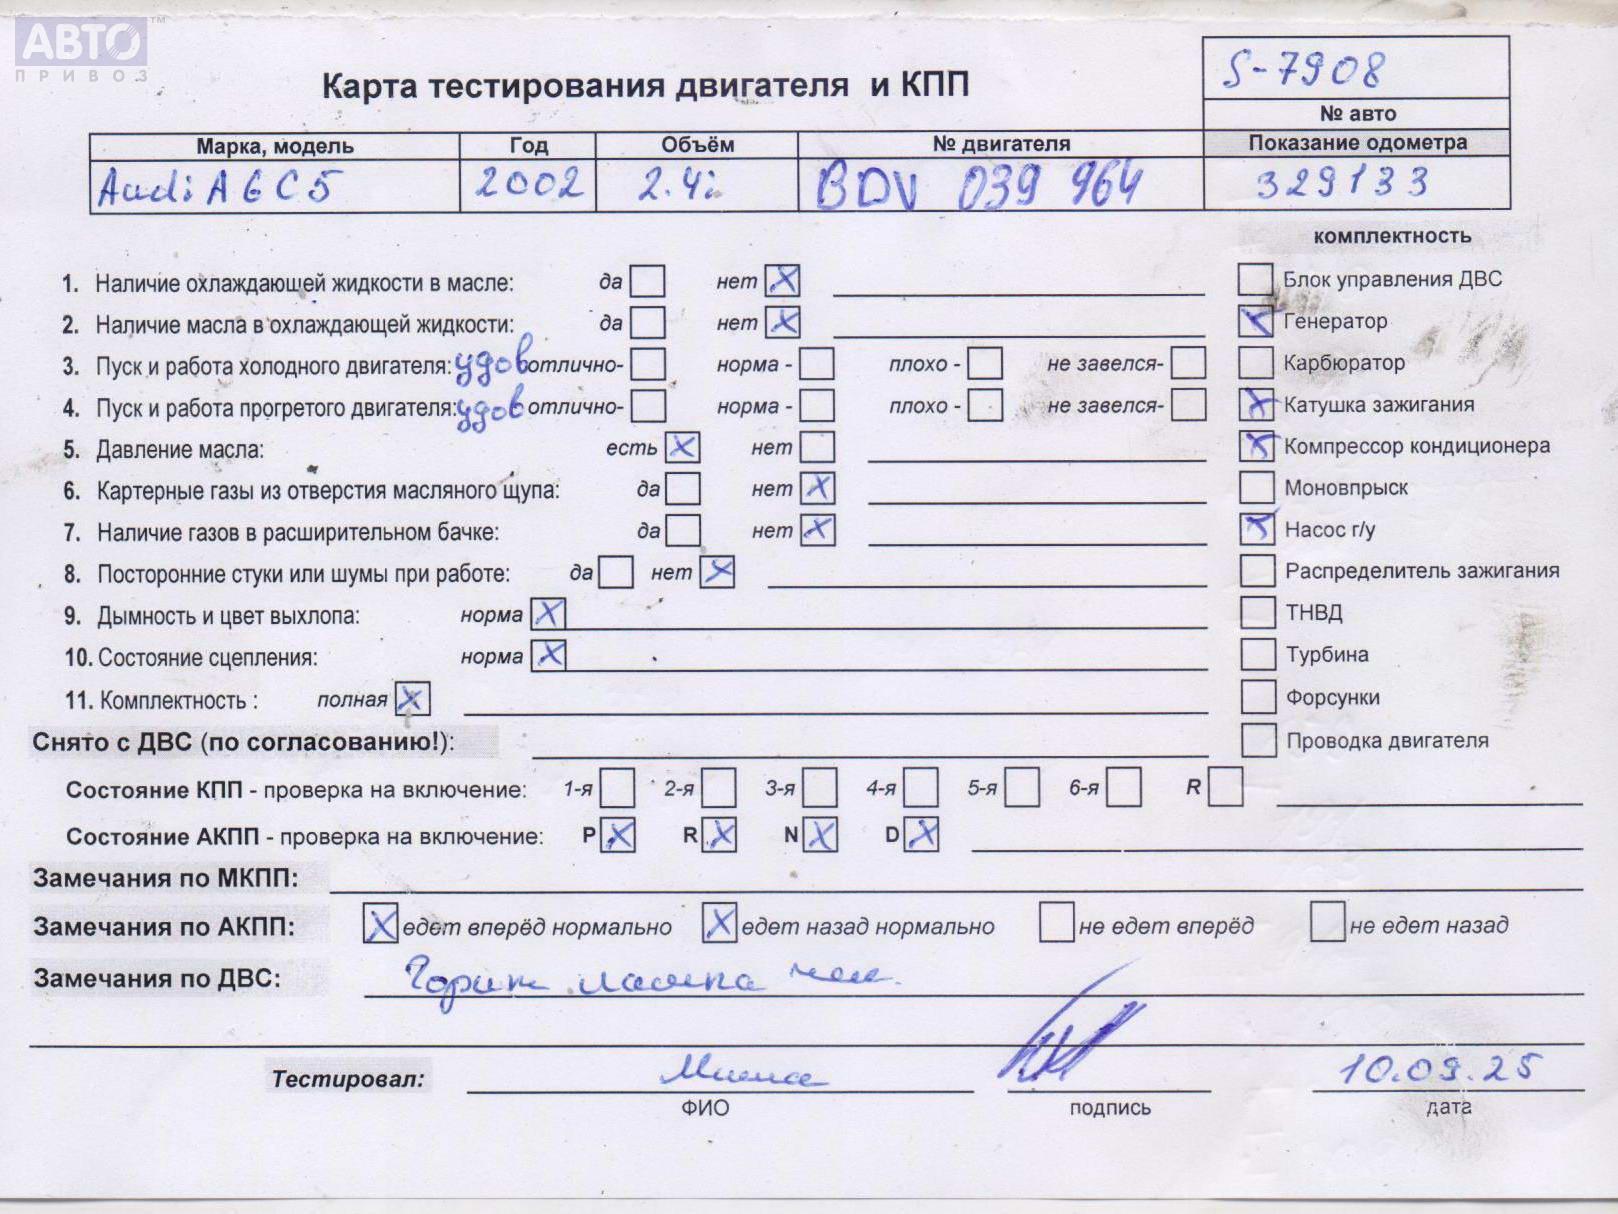 АВТО™
ПРИВОЗ
S-7908
Карта тестирования двигателя и КПП
№ авто
Марка, модель Год Объём № двигателя Показание одометра
Audi A6 C5 2002 2.4i BDV 039 964 329133
комплектность
1. Наличие охлаждающей жидкости в масле: да нет X
Блок управления ДВС
2. Наличие масла в охлаждающей жидкости: да нет X
X Генератор
3. Пуск и работа холодного двигателя: удов отлично- норма - плохо - не завелся-
Карбюратор
4. Пуск и работа прогретого двигателя: удов отлично- норма - плохо - не завелся-
X Катушка зажигания
5. Давление масла: есть X нет
X Компрессор кондиционера
6. Картерные газы из отверстия масляного щупа: да нет X
Моновпрыск
7. Наличие газов в расширительном бачке: да нет X
X Насос г/у
8. Посторонние стуки или шумы при работе: да нет X
Распределитель зажигания
9. Дымность и цвет выхлопа: норма X
ТНВД
10. Состояние сцепления: норма X
Турбина
11. Комплектность : полная X
Форсунки
Снято с ДВС (по согласованию!):
Проводка двигателя
Состояние КПП - проверка на включение: 1-я 2-я 3-я 4-я 5-я 6-я R
Состояние АКПП - проверка на включение: P X R X N X D X
Замечания по МКПП:
Замечания по АКПП: X едет вперёд нормально X едет назад нормально не едет вперёд не едет назад
Замечания по ДВС: Горит лампа чек.
Тестировал: 10.09.25
ФИО подпись дата